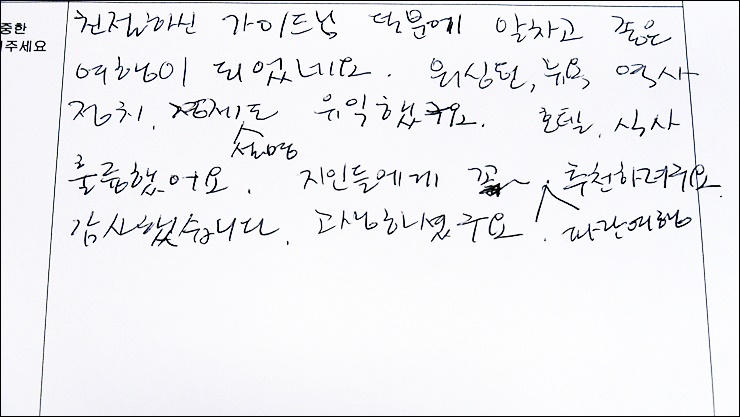 중한
주세요
친절하신 가이드님 덕분에 알차고 좋은
여행이 되었네요. 워싱턴, 뉴욕 역사
정치, 경제도 유익했구요. 호텔, 식사
설명
훌륭했어요. 지인들에게 꼭~ 추천하려구요.
감사했습니다. 고생하셨구요. 파란여행